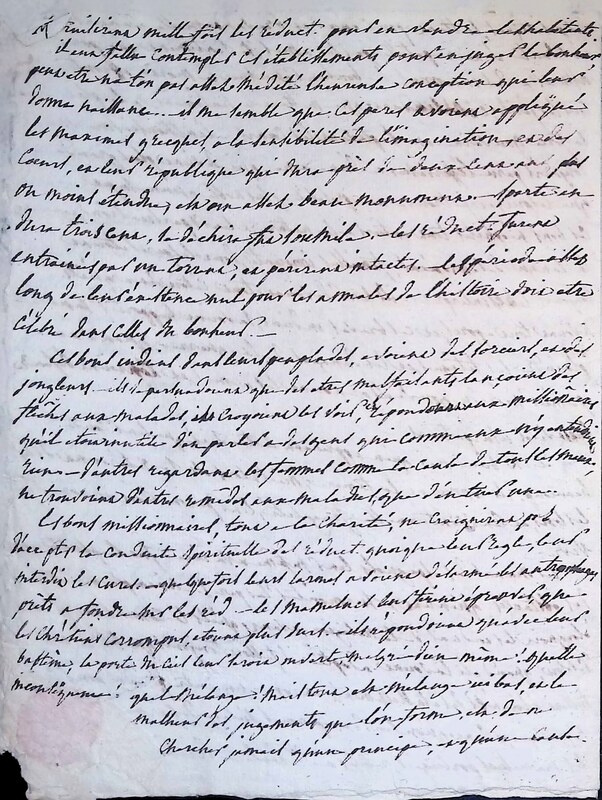 mille fois les réduct. pour en rendre les habitants
il eut fallu contempler ces établissements pour en juger le bonheur
peut etre na ton pas assez médité l'heureuse conception que leur
donna naissance. il me semble que ces peres avoient appliqué
les maximes grecques, a la sensibilité de l'imagination, et des
Coeurs, et leur république qui dura près de deux cent ans plus
ou moins étendue, est un assez beau monument. Sparte en
dura trois cent, les réduct. furent
entrainés par un torrent, et périrent intactes. les période assez
long de leur existence nul pour les annales de l'histoire doit etre
célébré dans celles du bonheur.
Ces bons indiens dans leurs peuplades, avoient des sorciers, et des
jongleurs. ils se persuadoient que des etres malfaisants lançoient des
flèches aux malades ils croyoient les voir, répondoient aux missionaires
qu'il etoit inutile d'en parler a des gens qui comme eux n'y entendoient
rien. d'autres regardant les femmes comme la cause de tous les maux,
ne trouvoient d'autres remèdes aux maladies, que d'en tuer une.
les bons missionnaires, tout a la charité, ne craignirent pas
d'accepter la conduite spirituelle des réduct. quoique leur regle, leur
interdit les cures. quelquefois leurs larmes avoient désarmé les antropophages
prets a fondre sur les réd. les mamelucs
les Chrétiens corrompus, etoient plus durs. ils répondoient qu'avec leur
baptême, la porte du Ciel leur seroit ouverte, malgré dieu même! quelle
inconséquence! quel mélange! mais tout est mélange ici bas, et le
malheur des jugements que l'on forme, est de ne
chercher jamais qu'un principe, et qu'une cause